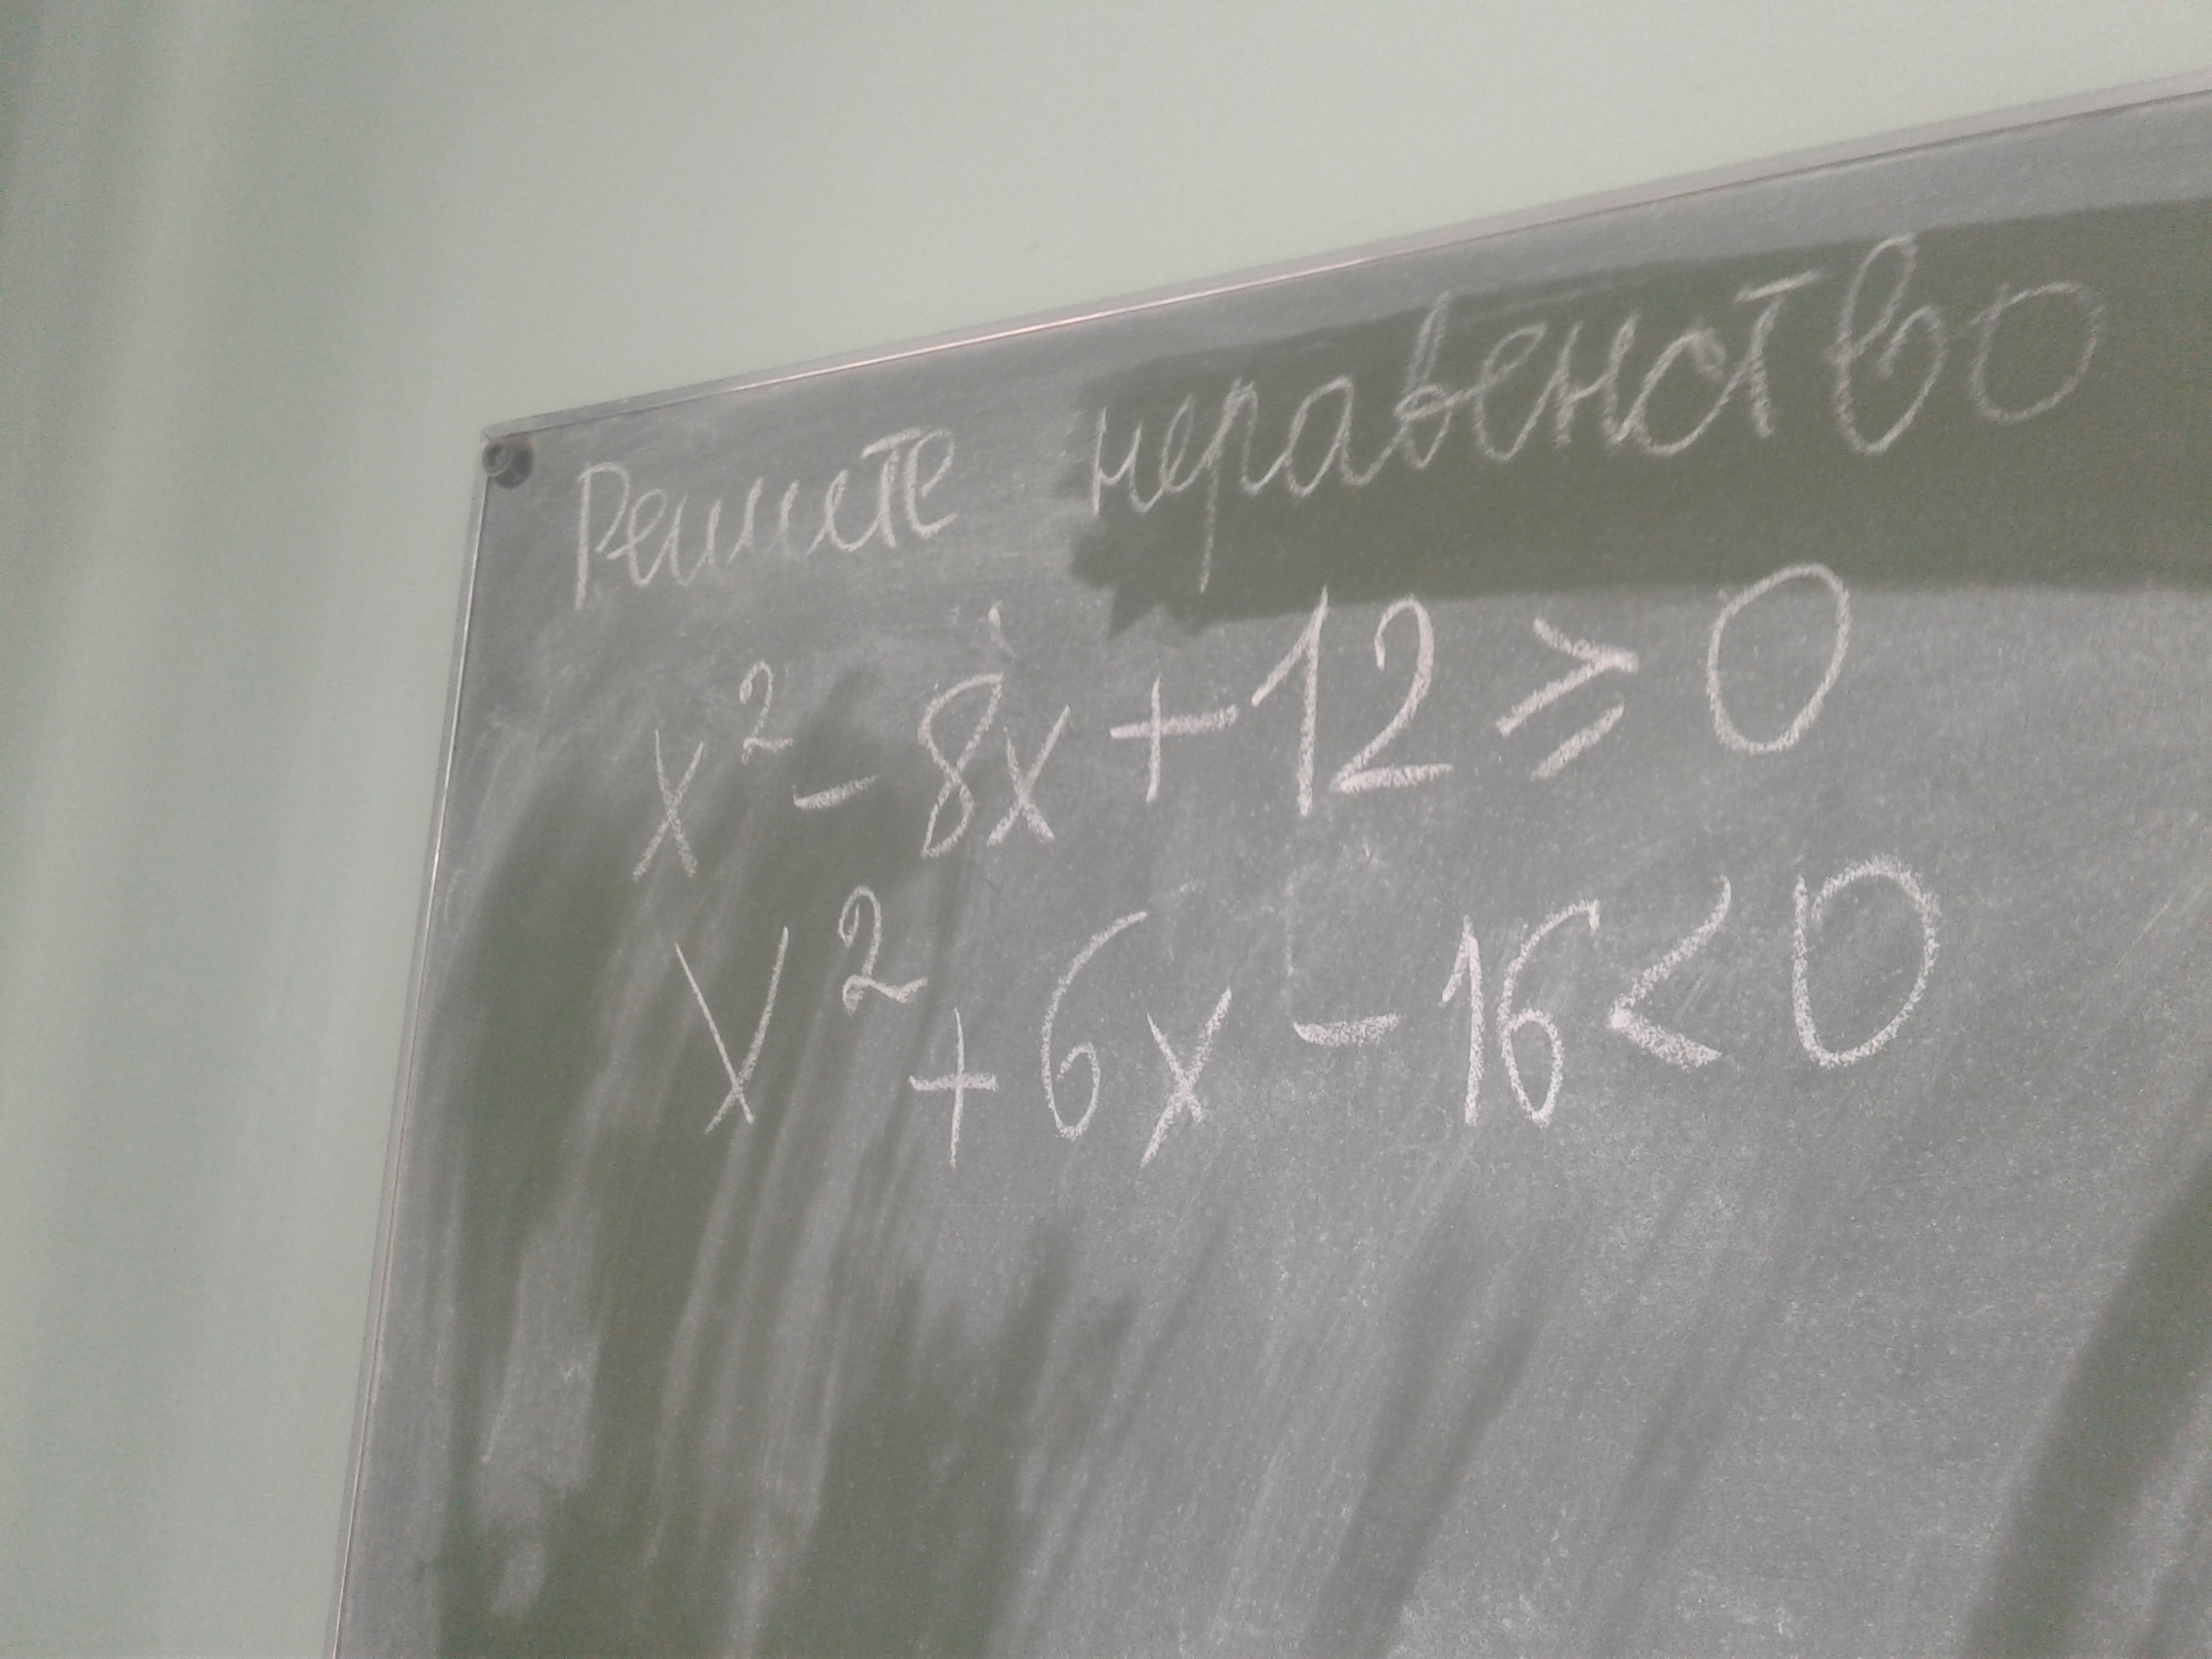 Решите неравенство
x² - 8x + 12 ⩾ 0
x² + 6x - 16 < 0